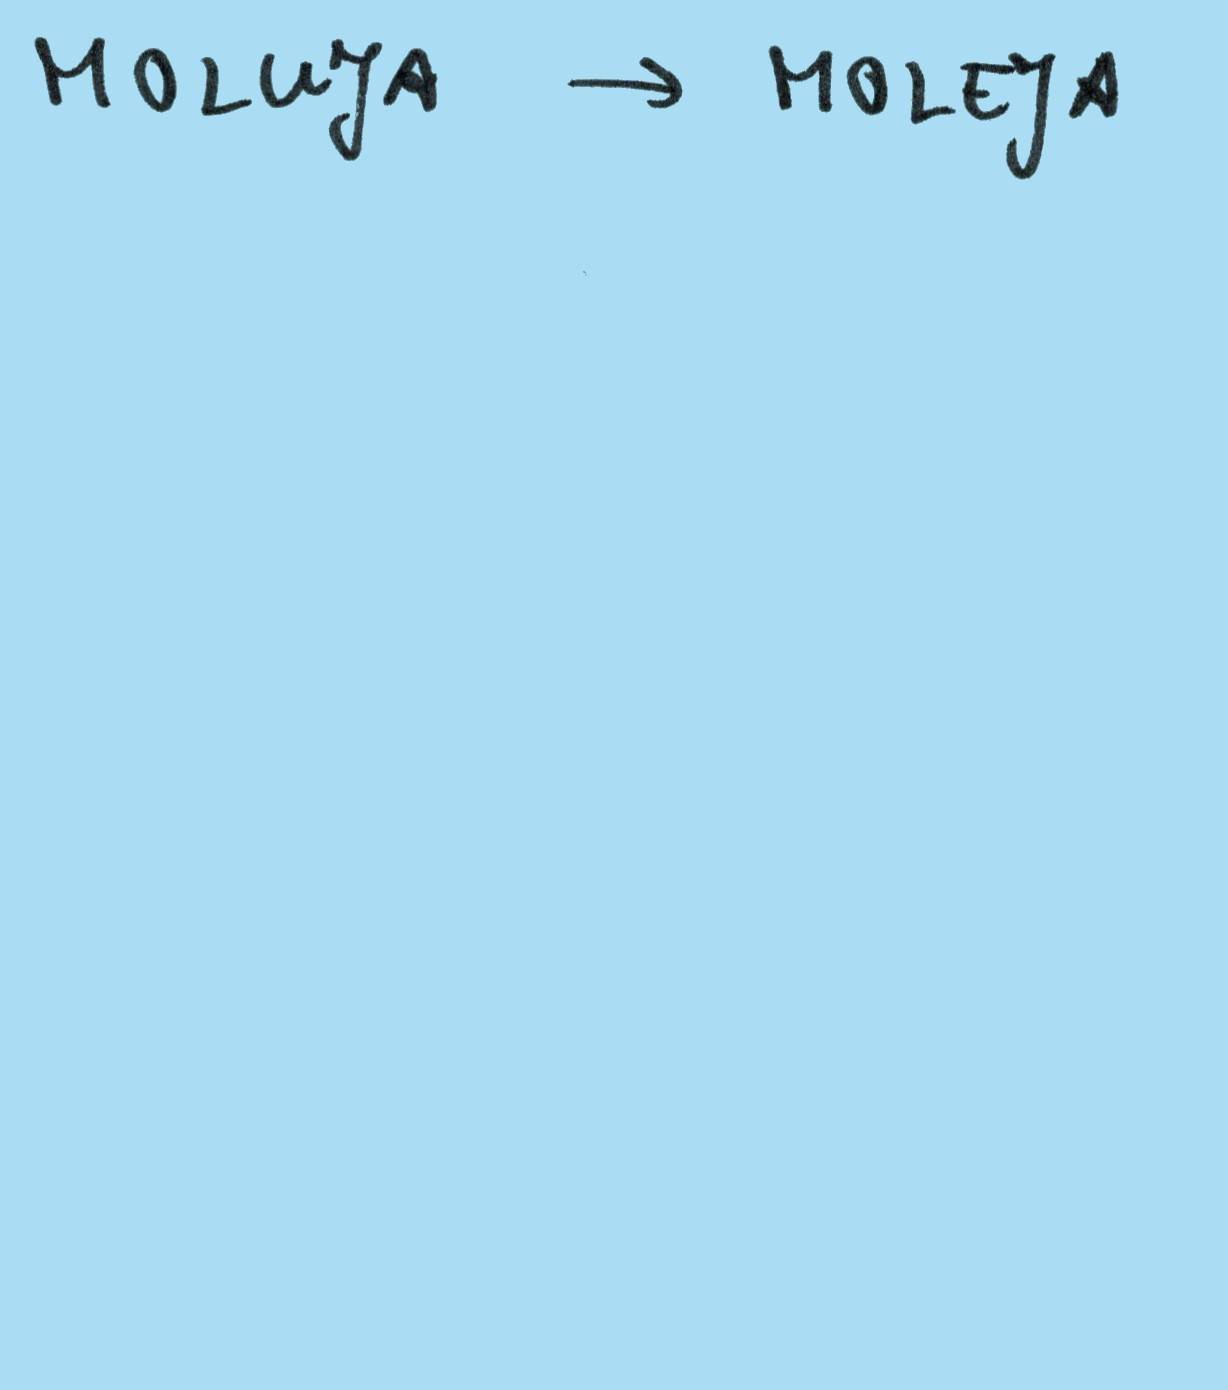 MOLUJA → MOLEJA